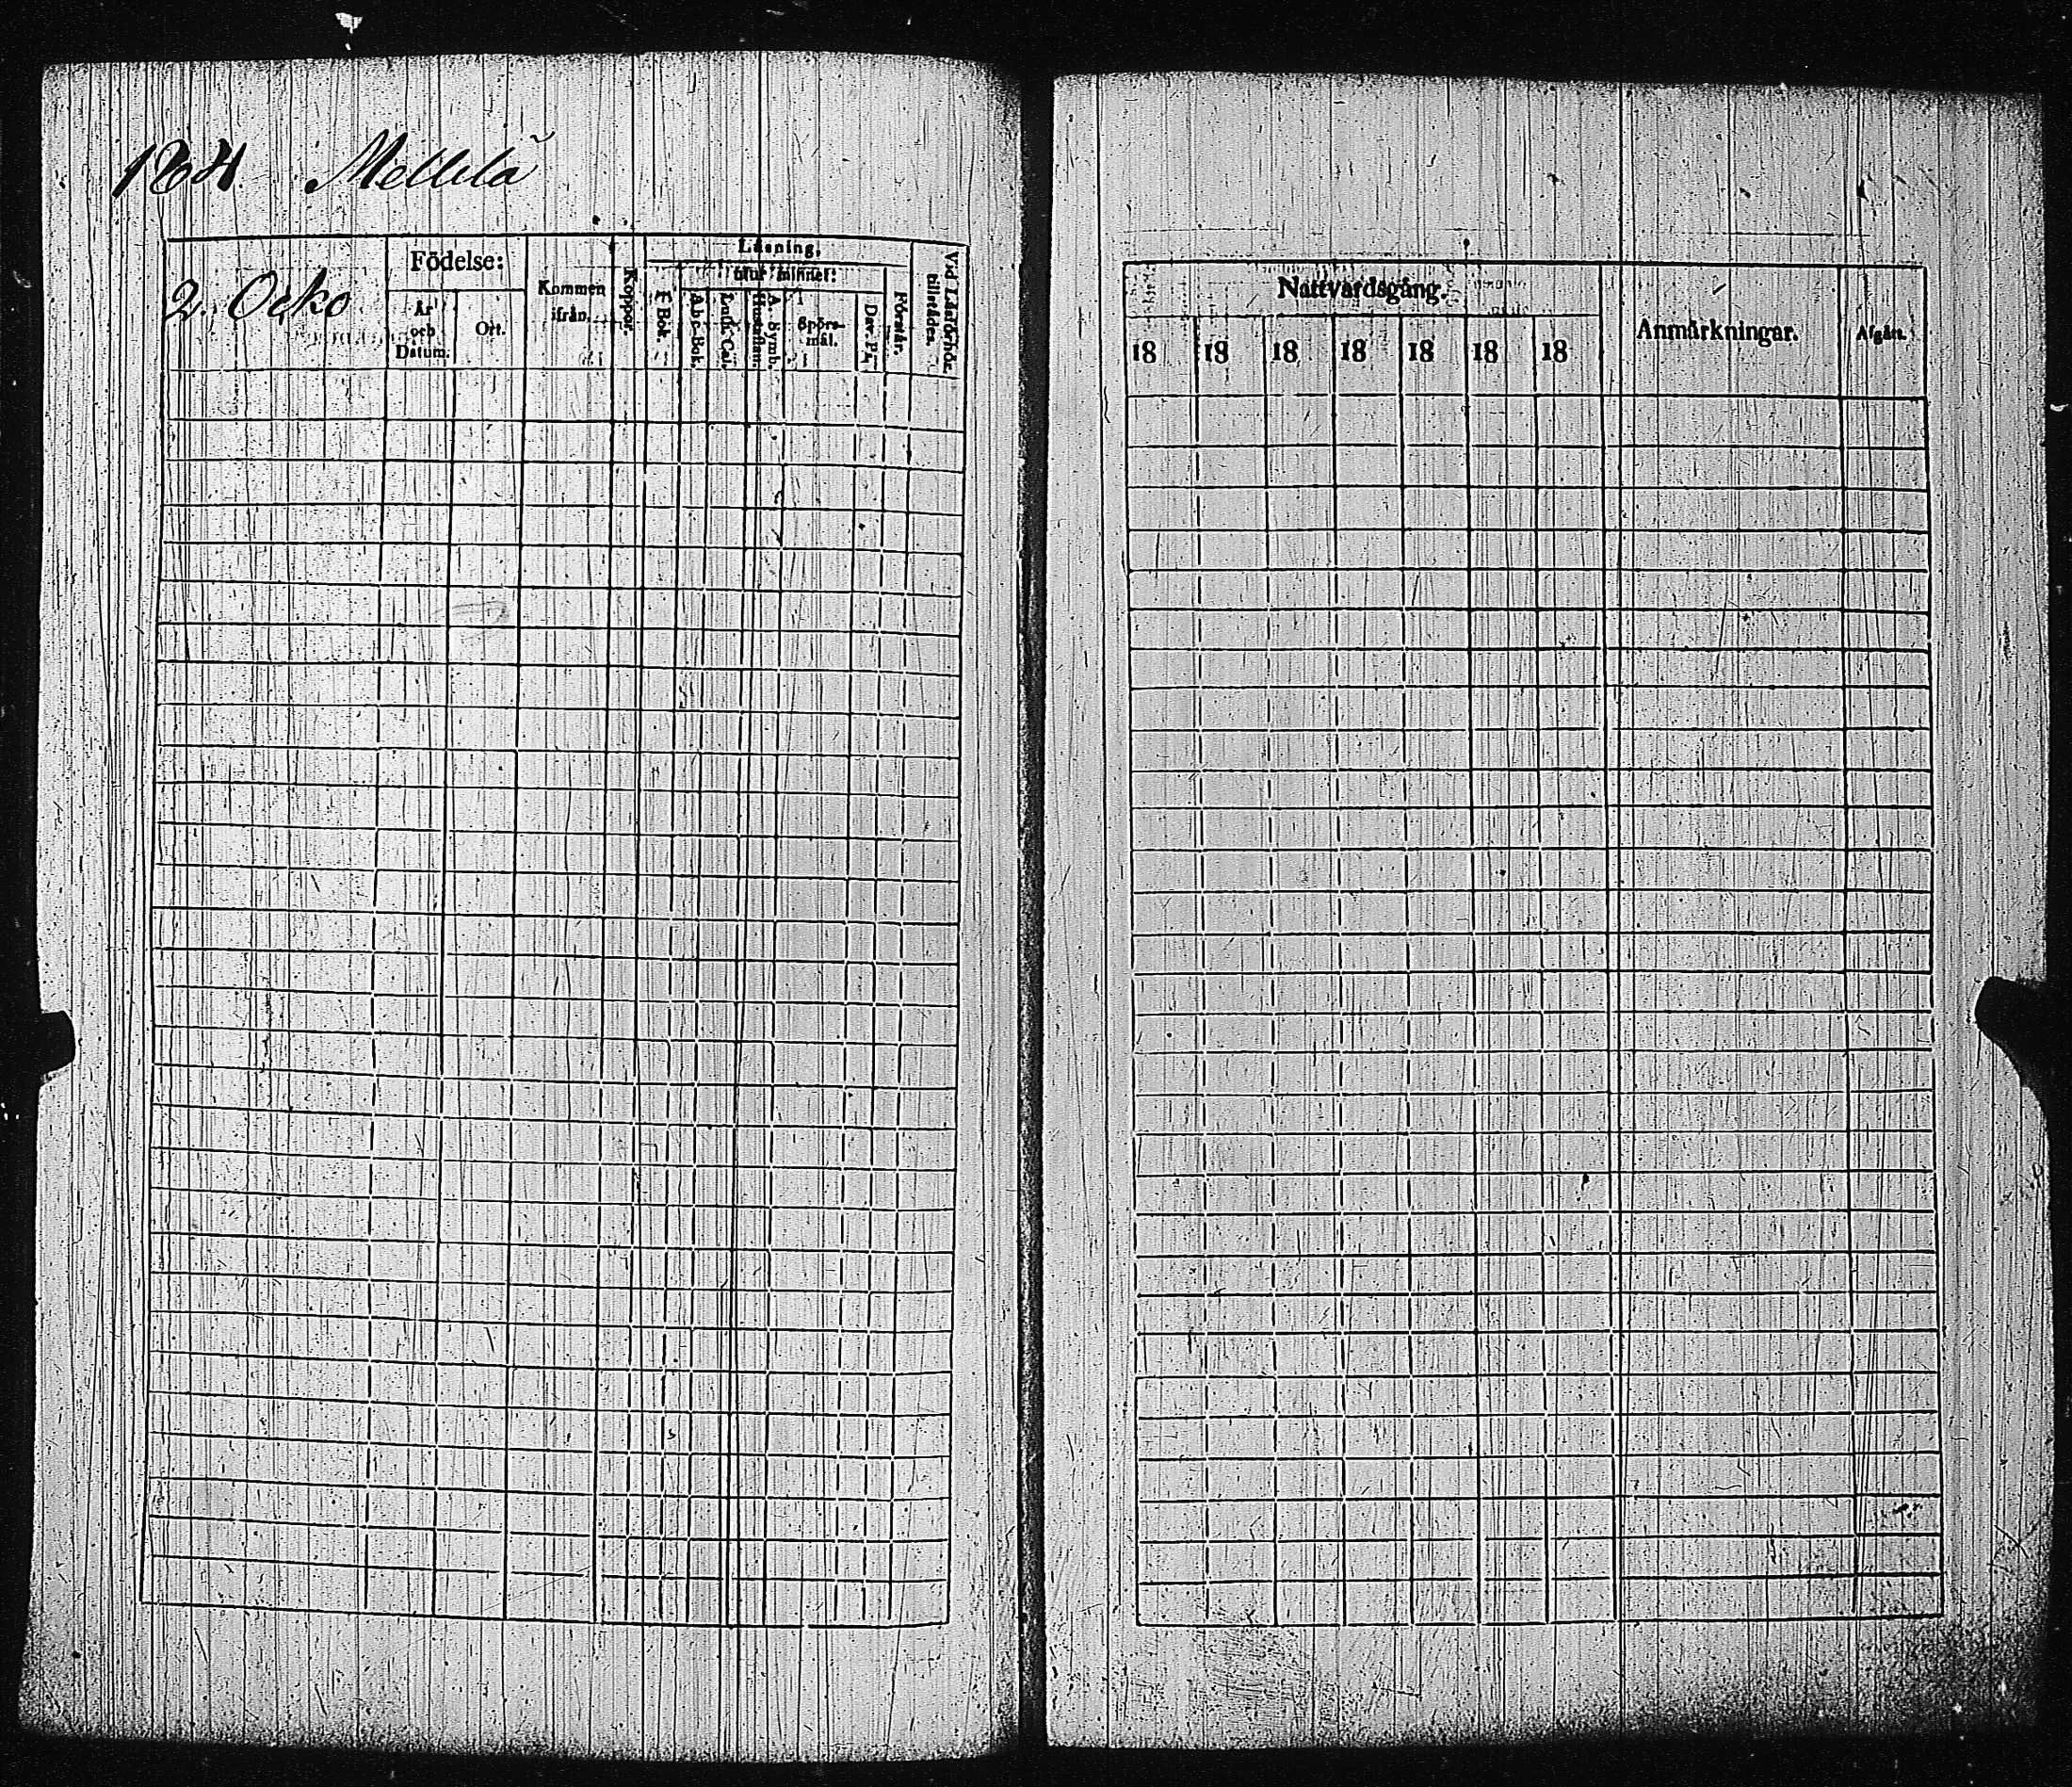 164. Mellilä
2. Ocko
Födelse:
År och Datum.
Ort.
Kommen ifrån.
Koppor.
Läsning.
I Bok.
utur minnet:
A b c-Bok.
Luth. Cat.
Hustaflan.
A. Symb.
Spörsmål.
Dav. Ps.
Förstår.
Vid Läsförhör tillstädes.
Nattvardsgång.
18 18 18 18 18 18 18
Anmärkningar.
Afgått.